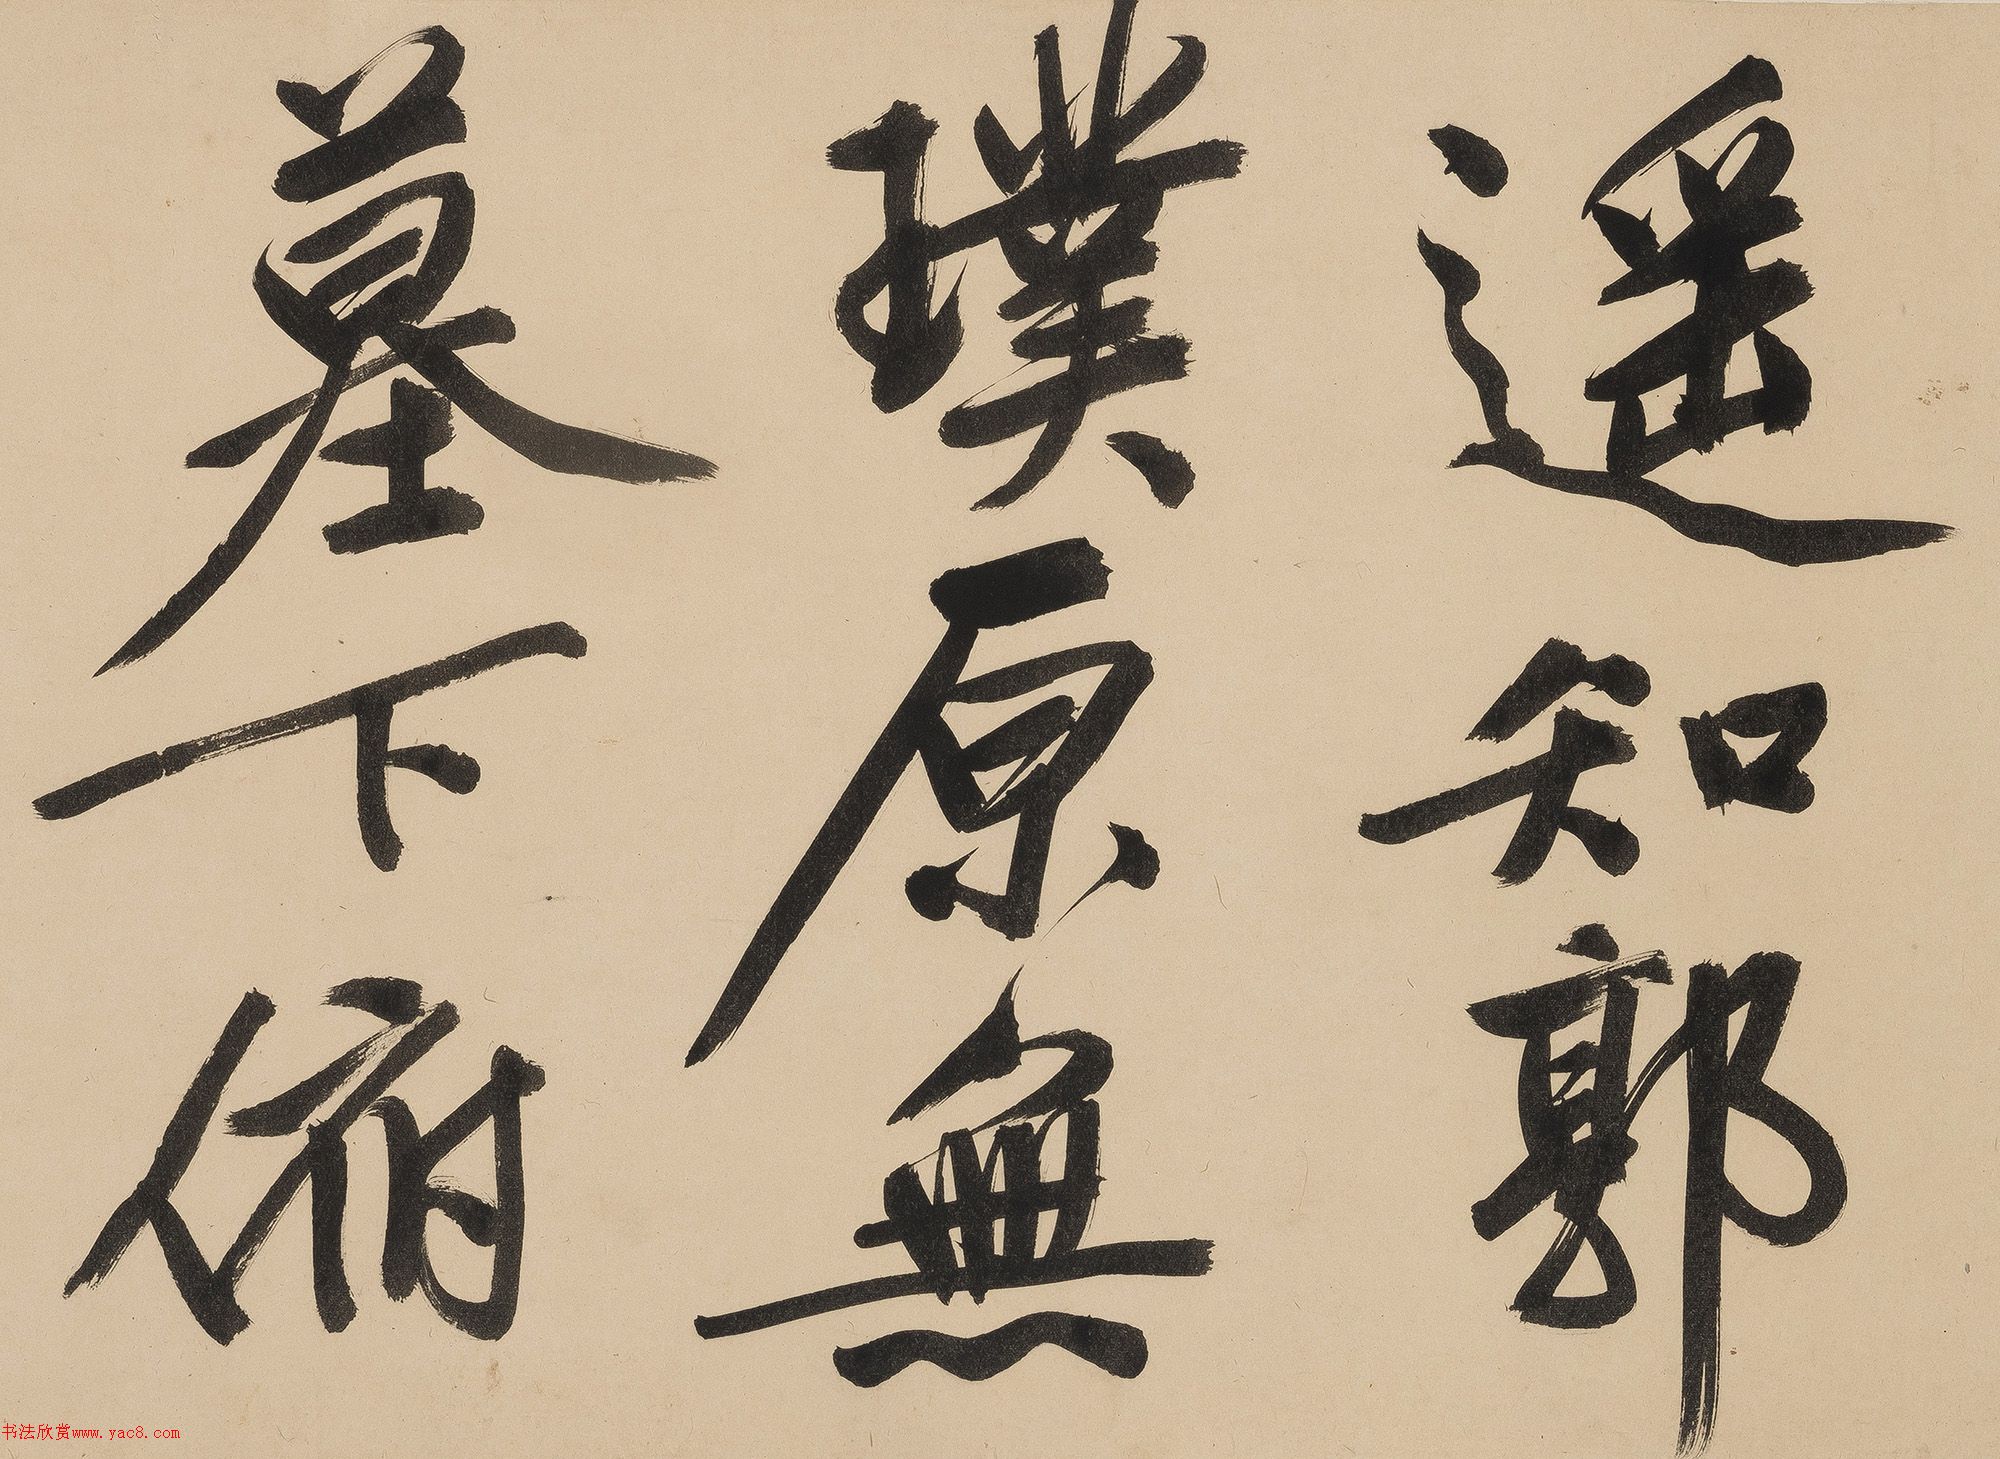 遥知郭
璞原無
墓下俯
书法欣赏www.yac8.com